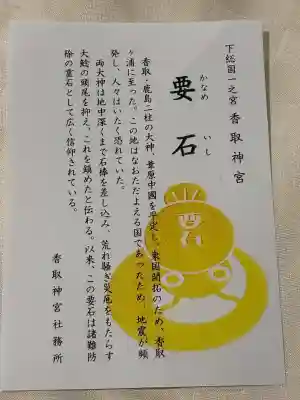 下総国一之宮 香取神宮
かなめ いし
要石
香取・鹿島二柱の大神、葦原中國を平定し、東国開拓のため、香取
ヶ浦に至った。この地はなおただよえる国であったため、地震が頻
発し、人々はいたく恐れていた。
両大神は地中深くまで石棒を差し込み、荒れ騒ぎ災厄をもたらす
大鯰の頭尾を抑え、これを鎮めたと伝わる。以来、この要石は諸難防
除の霊石として広く信仰されている。
香取神宮社務所